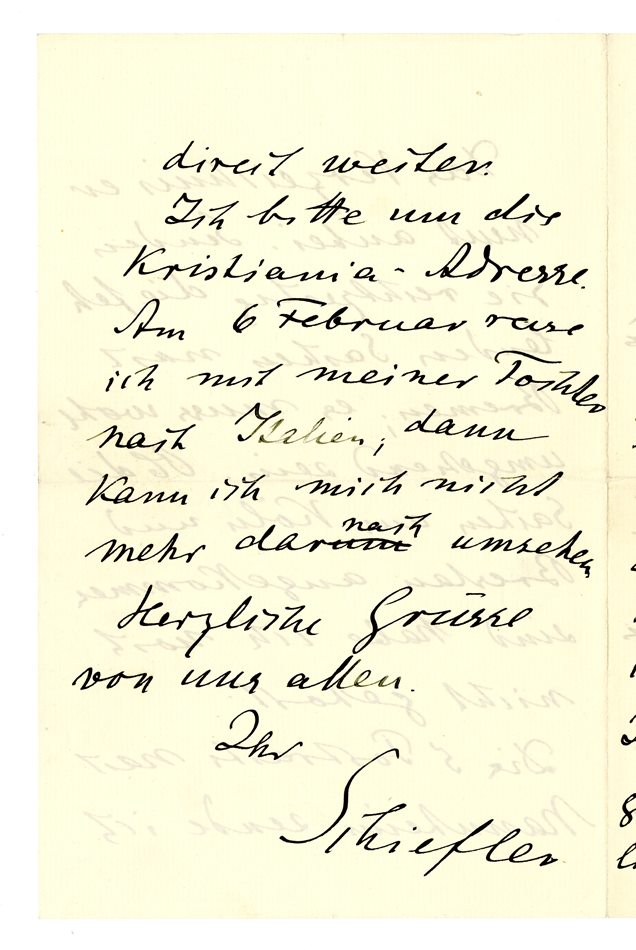 direct weiter.
Ich bitte um die
Kristiania-Adresse.
Am 6 Februar reise
ich mit meiner Tochter
nach Italien, dann
kann ich mich nicht
mehr darum nach umsehen
Herzliche Grüsse
von uns allen.
Ihr
Schiefler